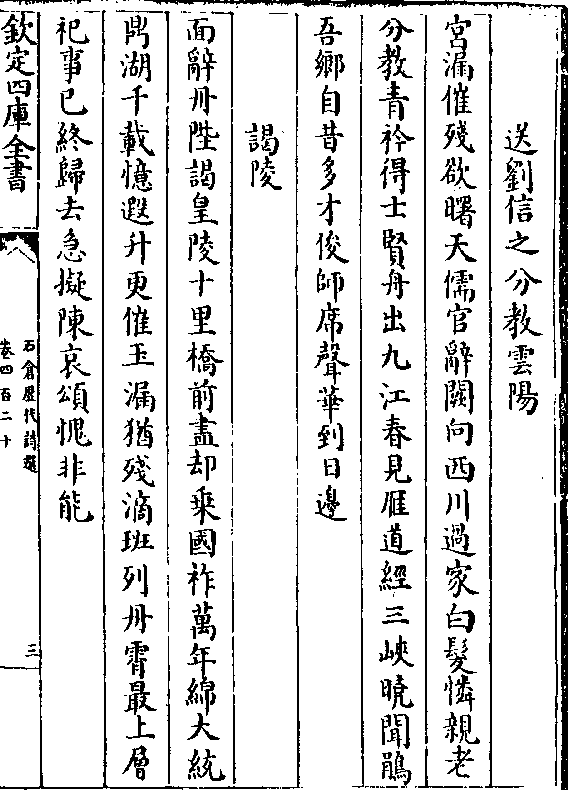 送劉信之分教雲陽
宮漏催殘欲曙天儒官辭闕向西川過家白髮憐親老
分教青衿得士賢舟出九江春見雁道經三峽曉聞鵑
吾鄉自昔多才俊師席聲華到日邊
謁陵
面辭丹陛謁皇陵十里橋前盡却乗國祚萬年綿大統
鼎湖千載憶遐升更催玉漏猶殘滴班列丹霄最上層
祀事已終歸去急擬陳哀頌愧非能
欽定四庫全書
石倉歷代詩選
卷四百二十
三